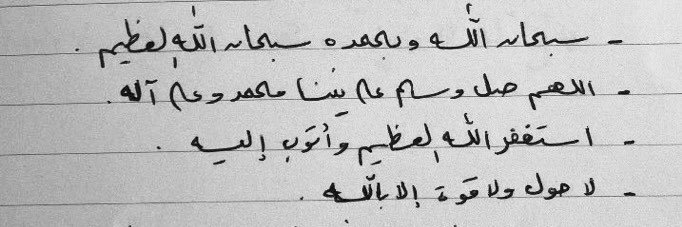 - سبحان الله وبحمده سبحان الله العظيم .
- اللهم صل وسلم على نبينا محمد وعلى آله .
- استغفر الله العظيم وأتوب إليه .
- لا حول ولا قوة إلا بالله .